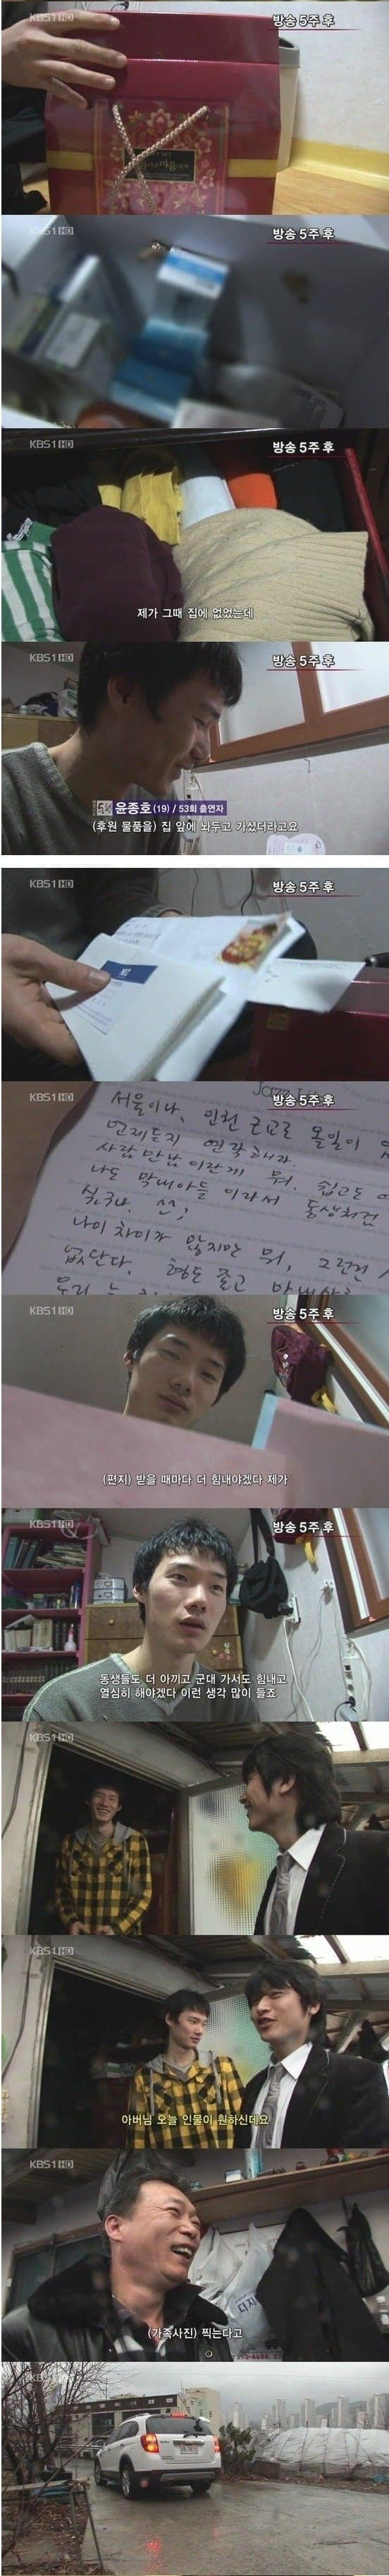 KBS1 HD
방송 5주 후
마음
KBS1 HD
방송 5주 후
KBS1 HD
방송 5주 후
제가 그때 집에 없었는데
KBS1 HD
방송 5주 후
윤종호(19) / 53회 출연자
(후원 물품을) 집 앞에 놔두고 가셨더라고요
KBS1 HD
방송 5주 후
KBS1 HD
방송 5주 후
서울이나, 인천 근교로 올일이
언제든지 연락해라.
사람 만남이란게 뭐. 쉽고도
나도 막내아들 이라서 동생처럼
싶구나. ^^;
나이 차이가 많지만 뭐, 그런건
없단다. 형도 좋고
KBS1 HD
방송 5주 후
(편지) 받을 때마다 더 힘내야겠다 제가
KBS1 HD
방송 5주 후
동생들도 더 아끼고 군대 가서도 힘내고
열심히 해야겠다 이런 생각 많이 들죠
KBS1 HD
KBS1 HD
아버님 오늘 인물이 훤하신데요
KBS1 HD
디지
(가족사진) 찍는다고
KBS1 HD